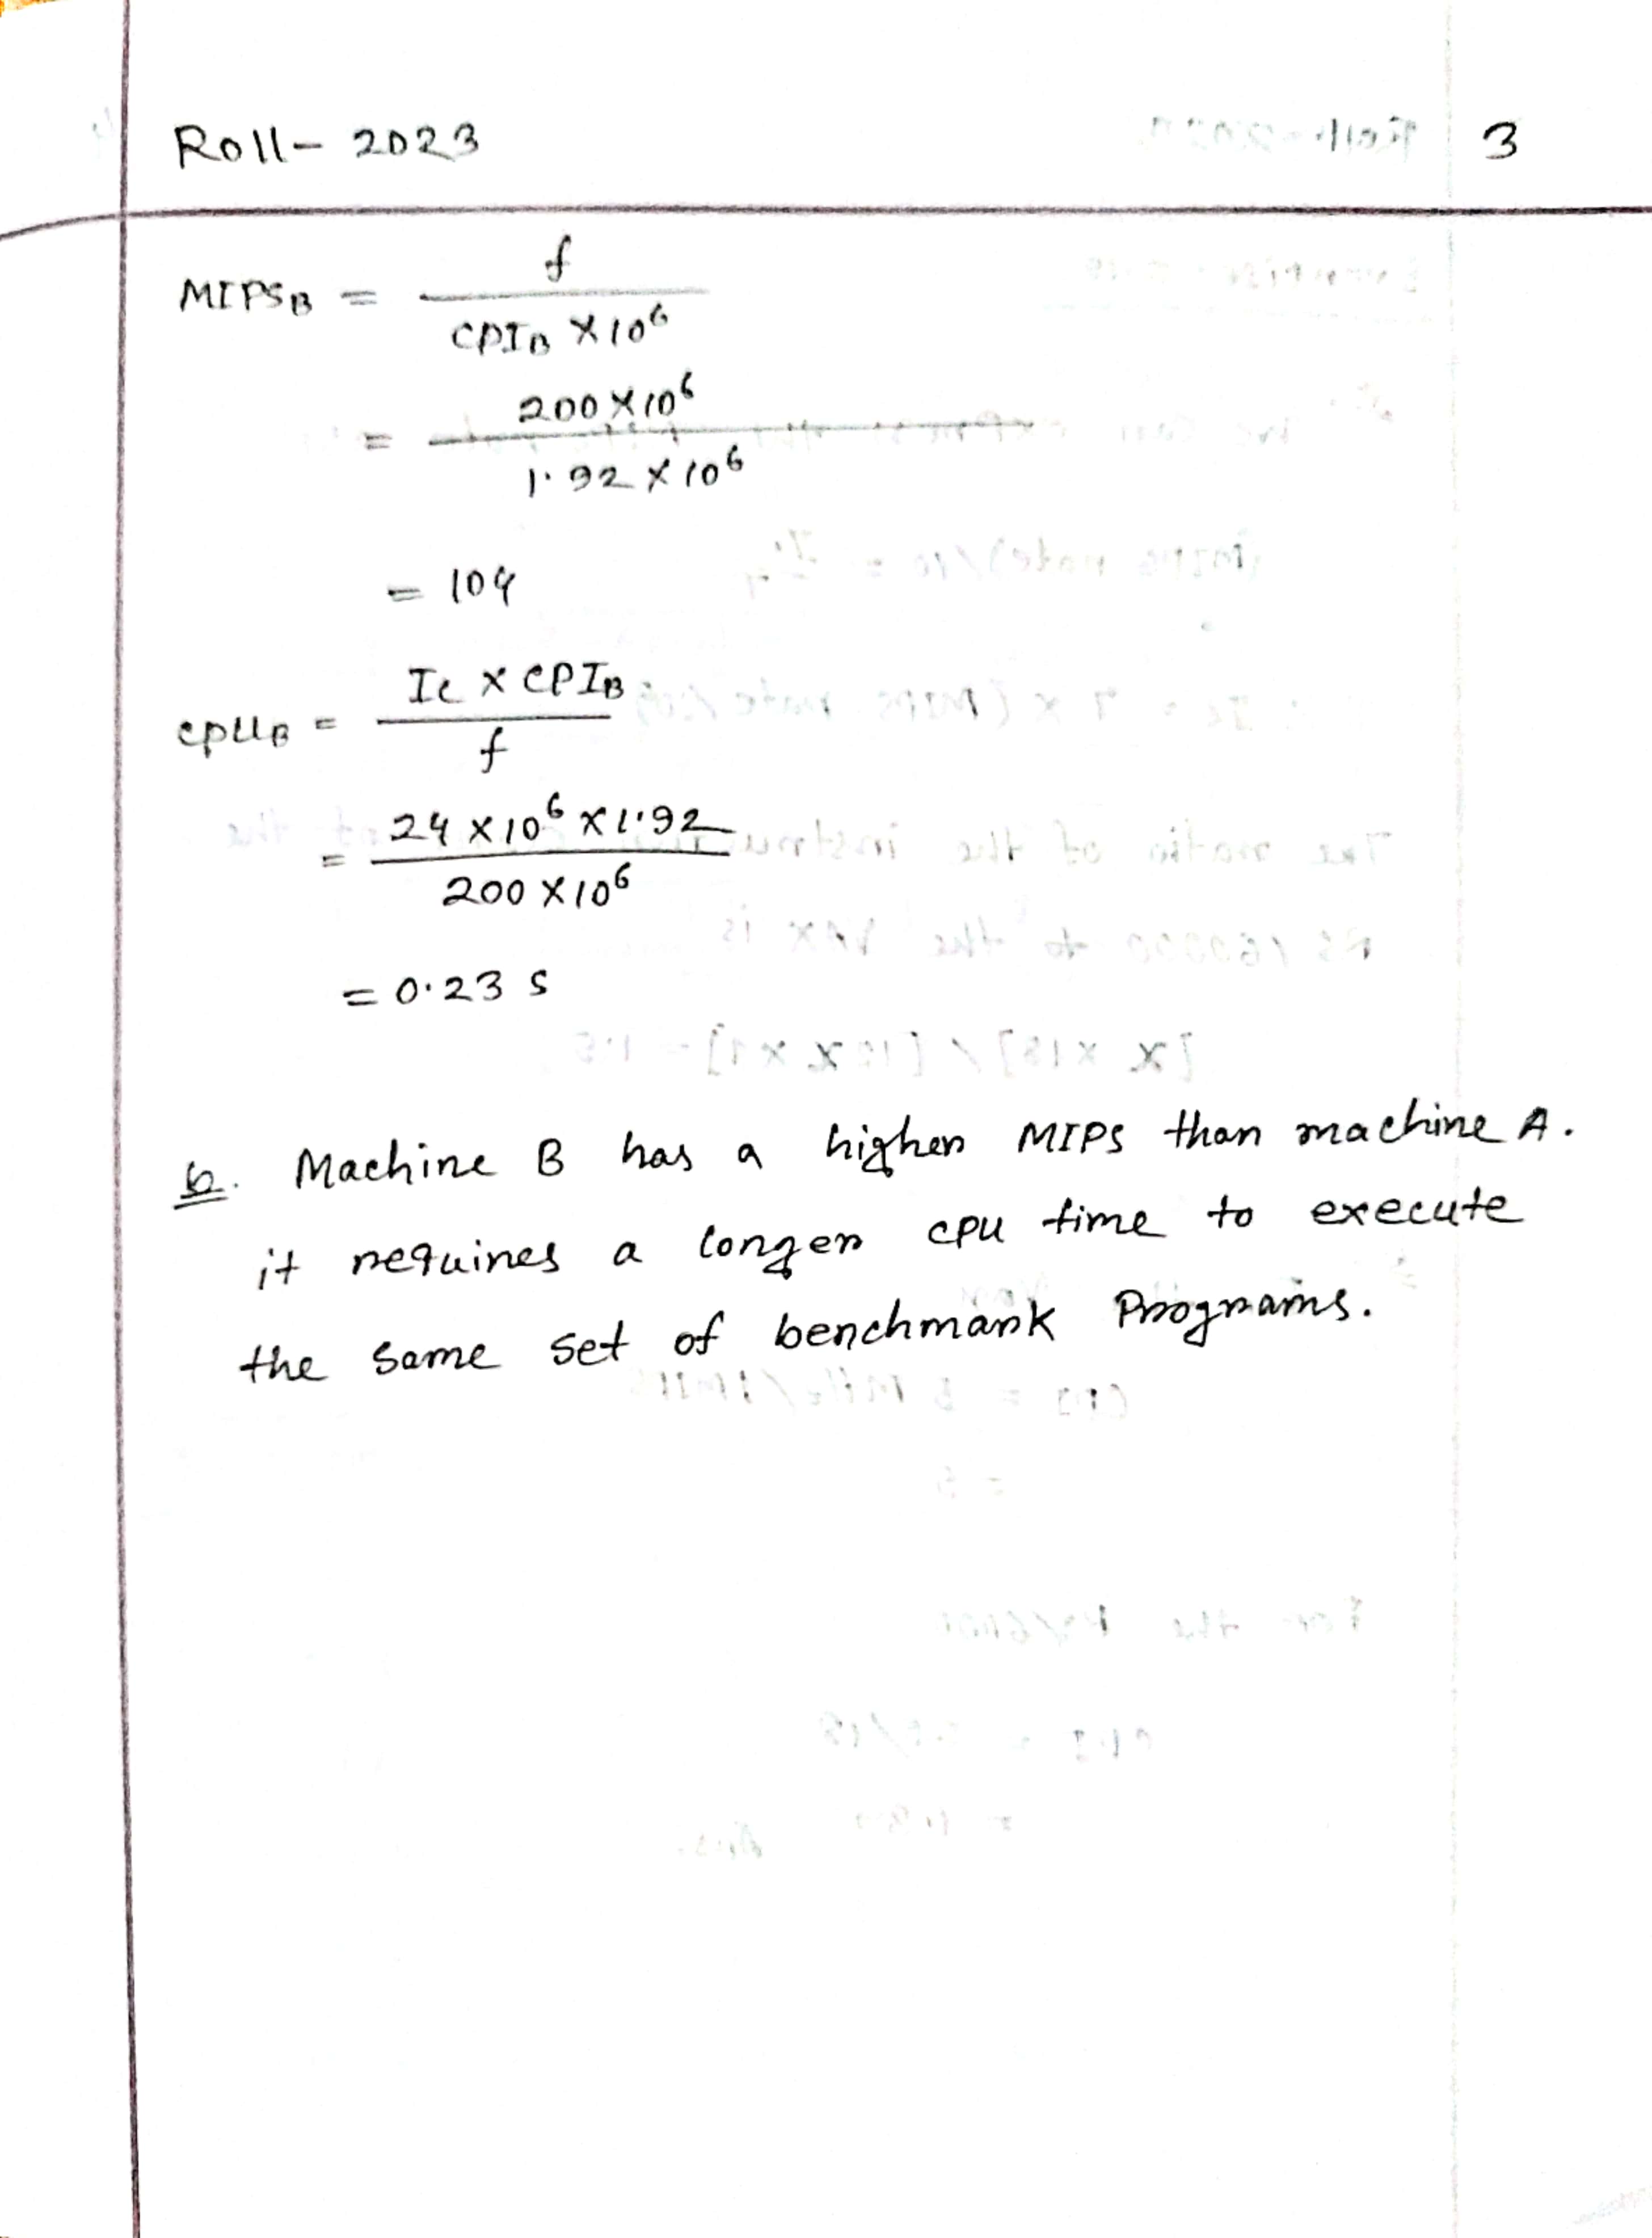 Roll- 2023 3
MIPSB = f
CPIB × 10⁶
= 200 × 10⁶
1.92 × 10⁶
= 104
CPUB = Ic × CPIB
f
= 24 × 10⁶ × 1.92
200 × 10⁶
= 0.23 s
b. Machine B has a higher MIPS than machine A.
it requires a longer CPU time to execute
the same set of benchmark Programs.